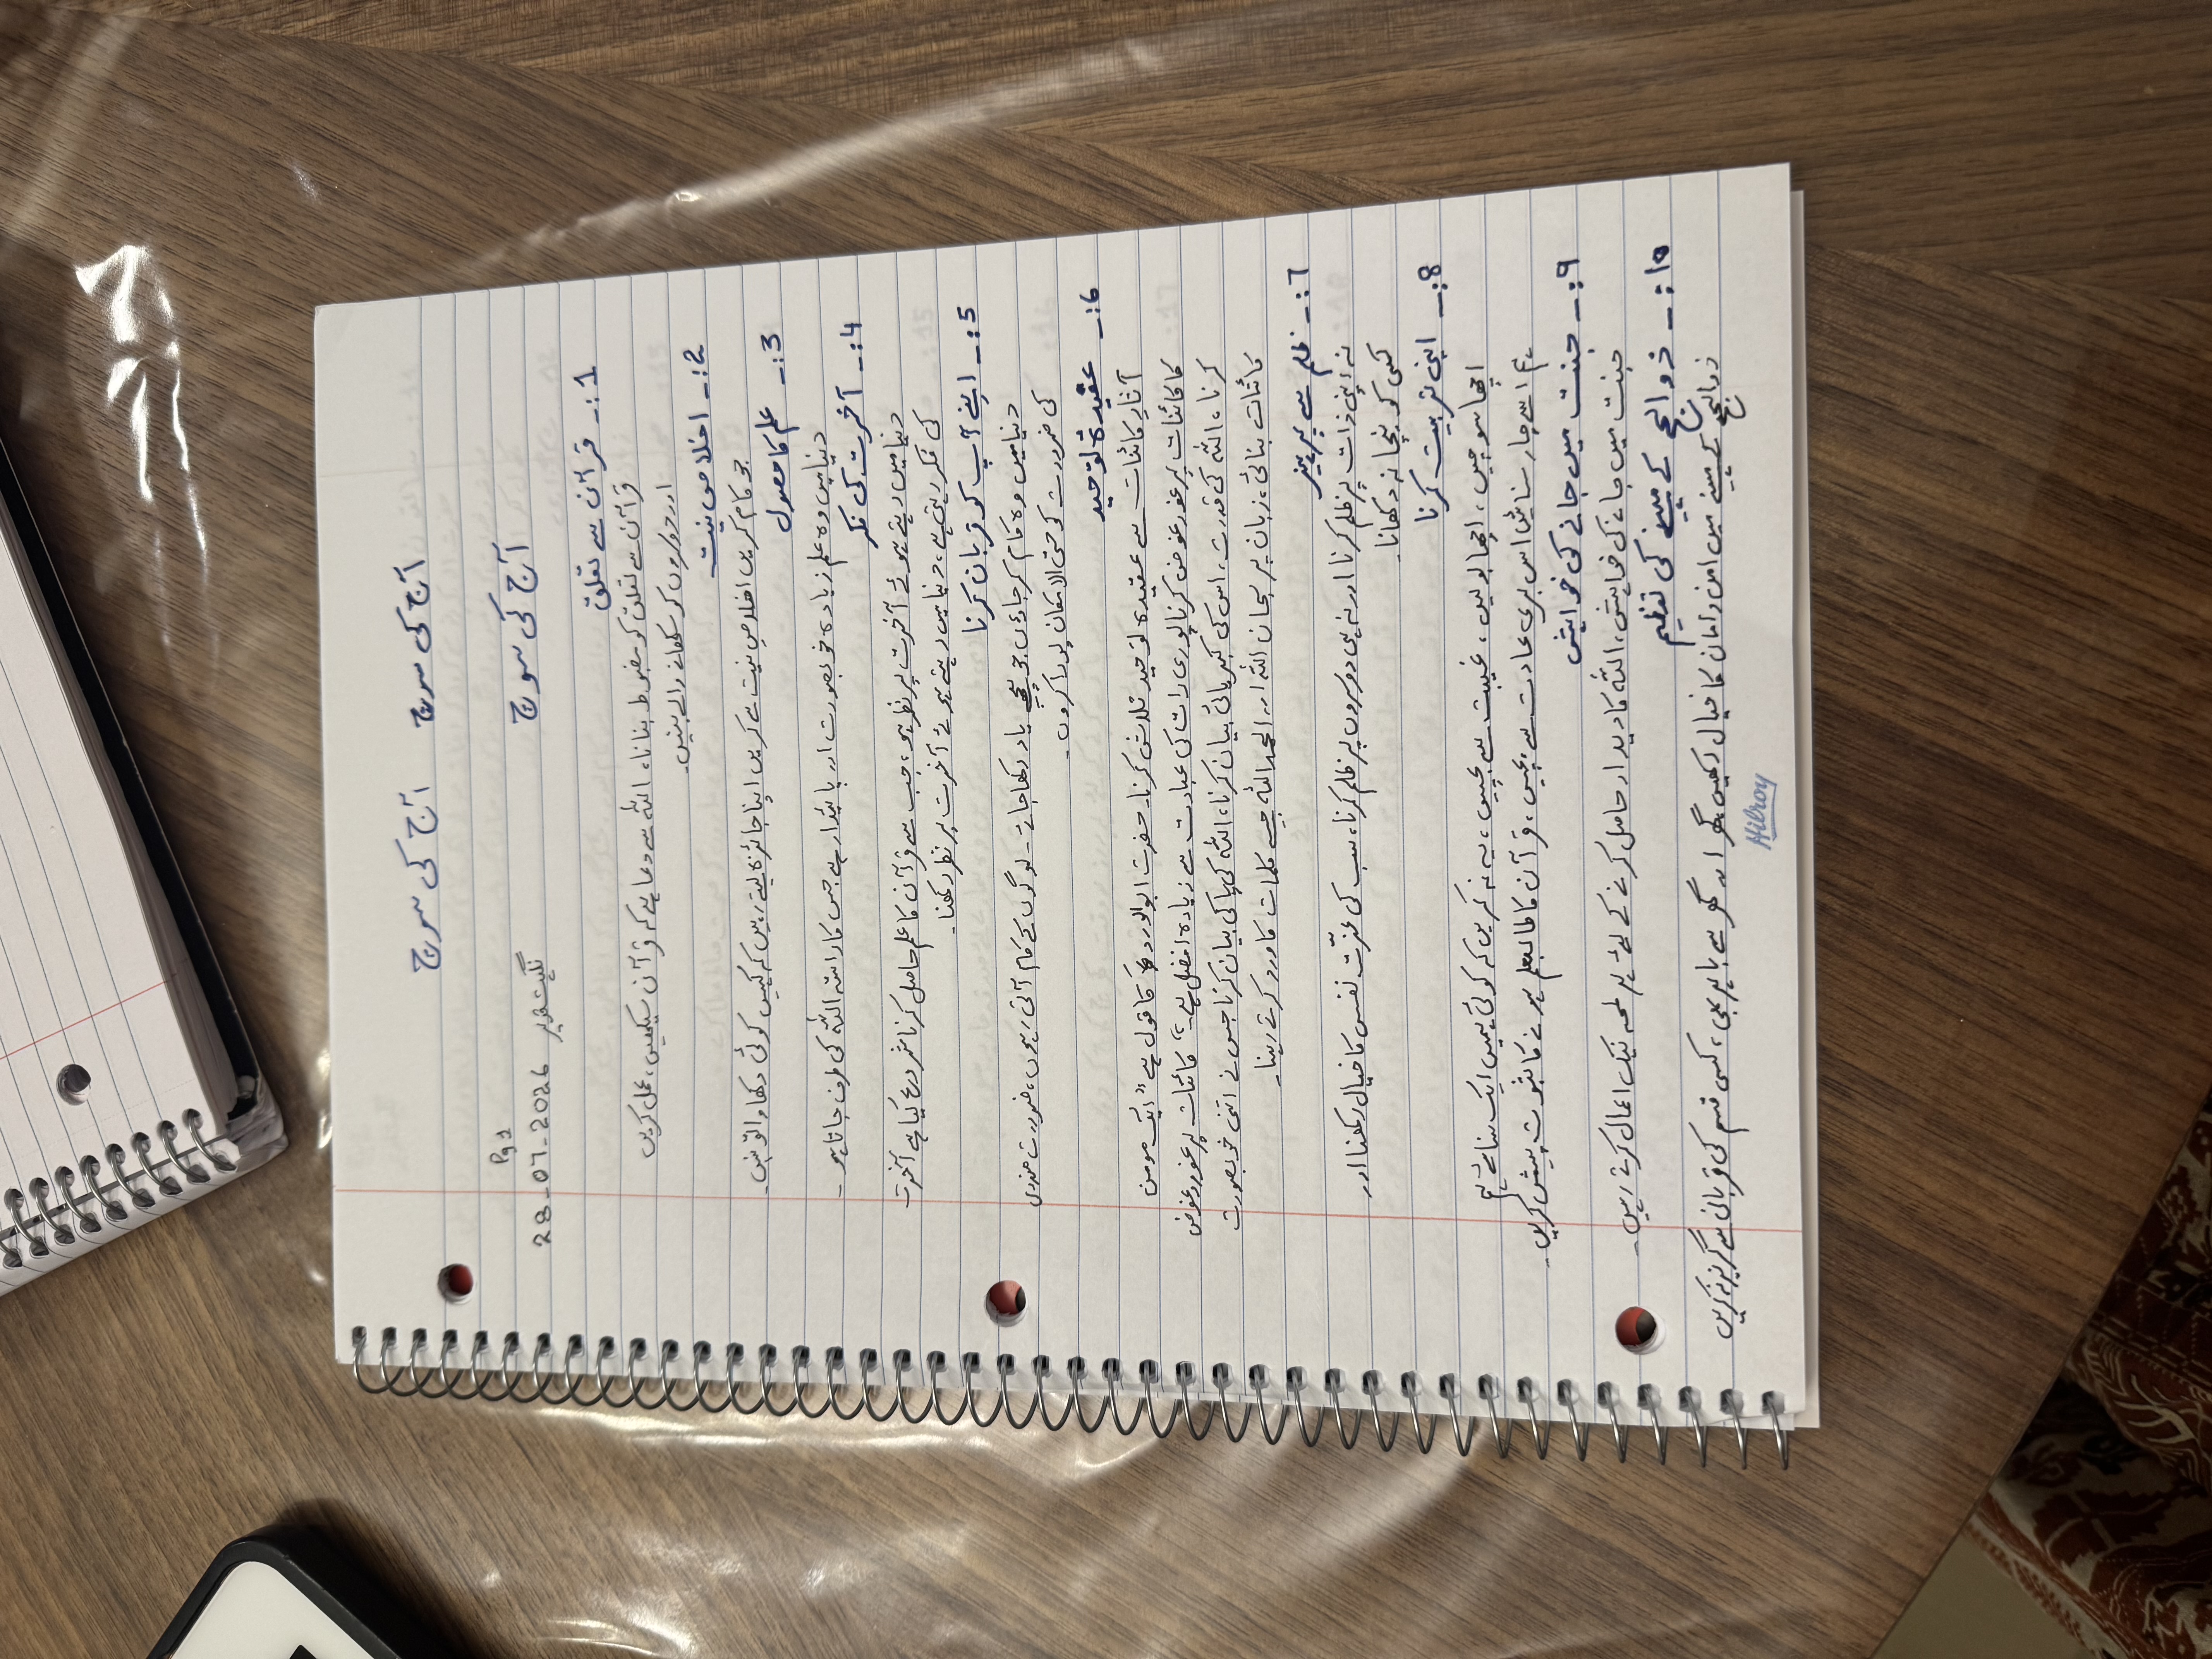 آج کی سوچ آج کی سوچ
Pg 1
آج کی سوچ
28-07-2026
1:- قرآن سے تعلق
قرآن سے تعلق کو مضبوط بنانا، اللہ سے دعا ہے کہ قرآن سیکھیں، عمل کریں
اور دوسروں کو سکھانے والے بنیں۔
2:- اخلاص نیت
جو کام کریں اخلاص نیت سے کریں اپنا جائزہ لیتے رہیں کہ کہیں کوئی دکھاوا تو نہیں۔
3:- علم کا حصول
دنیا میں وہ علم زیادہ خوبصورت اور پائیدار ہے جس کا راستہ اللہ کی طرف جاتا ہو۔
4:- آخرت کی فکر
دنیا میں رہتے ہوئے آخرت پر نظر ہو، جب سے قرآن کا علم حاصل کرنا شروع کیا ہے آخرت
کی فکر رہتی ہے، دنیا میں رہتے ہوئے آخرت پر نظر رکھنا۔
5:- اپنے آپ کو قربان کرنا
دنیا میں وہ کام کر جاؤں جو یاد رکھا جائے۔ لوگوں کے کام آتی رہوں، ضرورت مندوں
کی ضرورت کو حتی الامکان پورا کروں۔
6:- عقیدہ توحید
آثار کائنات سے عقیدہ توحید تلاش کرنا۔ حضرت ابو الدرداء کا قول ہے "ایک مومن
کا کائنات پر غور غوض کرنا پوری رات کی عبادت سے زیادہ افضل ہے۔" کائنات پر غور و غوض
کرنا، اللہ کی قدرت، اس کی کبریائی بیان کرنا، اللہ کی پاکی بیان کرنا جس نے اتنی خوبصورت
کائنات بنائی، زبان پر سبحان اللہ اور الحمد اللہ جیسے کلمات کا ورد کرتے رہنا۔
7:- ظلم سے پرہیز
نہ اپنی ذات پر ظلم کرنا اور نہ ہی دوسروں پر ظلم کرنا، سب کی عزّت نفس کا خیال رکھنا اور
کسی کو نیچا نہ دکھانا۔
8:- اپنی تربیت کرنا
اچھا سوچیں، اچھا بولیں، غیبت سے بچیں، یہ نہ کریں کہ کوئی ہمیں ایک سنائے تو ہم
اسے چار سنائیں اس بری عادت سے بچیں، قرآن کا طالبعلم ہونے کا ثبوت پیش کریں۔
9:- جنت میں جانے کی خواہش
جنت میں جانے کی خواہش، اللہ کا دیدار حاصل کرنے کے لئے ہر لمحہ نیک اعمال کرتے رہیں۔
10:- ذوالحج کے مہینے کی تعظیم
ذوالحج کے مہینے میں امن و امان کا خیال رکھیں، گھر اور گھر سے باہر بھی، کسی قسم کی قربانی سے گریز نہ کریں
Hilroy